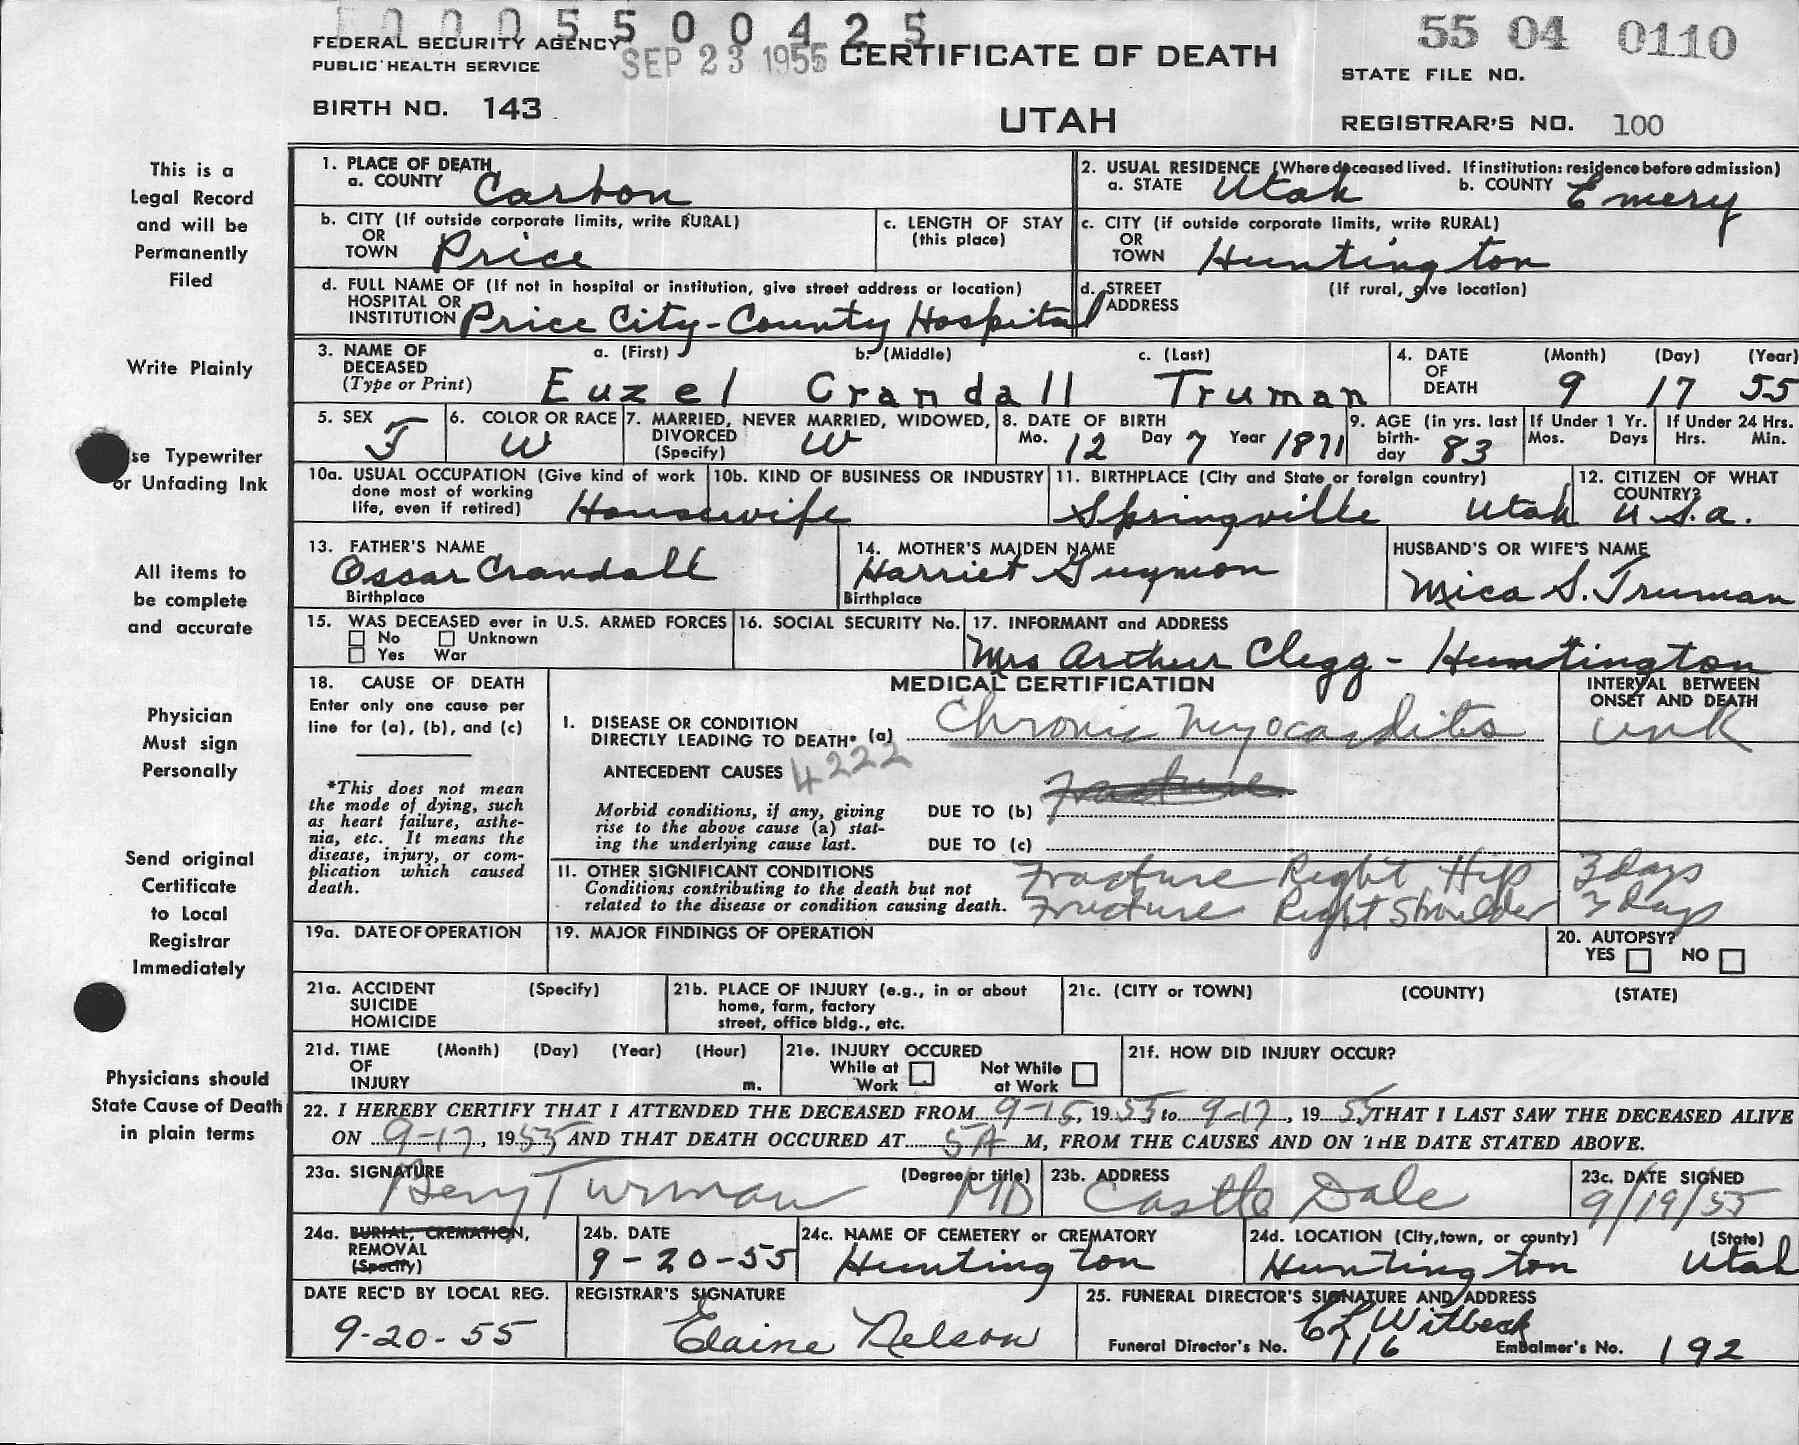 0005500425
FEDERAL SECURITY AGENCY
PUBLIC HEALTH SERVICE
SEP 23 1955
CERTIFICATE OF DEATH
55 04 0110
STATE FILE NO.
BIRTH NO. 143
UTAH
REGISTRAR'S NO. 100
This is a
Legal Record
and will be
Permanently
Filed
Write Plainly
se Typewriter
or Unfading Ink
All items to
be complete
and accurate
Physician
Must sign
Personally
Send original
Certificate
to Local
Registrar
Immediately
Physicians should
State Cause of Death
in plain terms
1. PLACE OF DEATH
a. COUNTY Carbon
2. USUAL RESIDENCE (Where deceased lived. If institution: residence before admission)
a. STATE Utah b. COUNTY Emery
b. CITY (If outside corporate limits, write RURAL)
OR
TOWN Price
c. LENGTH OF STAY
(this place)
c. CITY (if outside corporate limits, write RURAL)
OR
TOWN Huntington
d. FULL NAME OF (If not in hospital or institution, give street address or location)
HOSPITAL OR
INSTITUTION Price City-County Hospital
d. STREET (If rural, give location)
ADDRESS
3. NAME OF DECEASED
(Type or Print)
a. (First) b. (Middle) c. (Last)
Euzel Crandall Truman
4. DATE OF DEATH
(Month) (Day) (Year)
9 17 55
5. SEX F
6. COLOR OR RACE W
7. MARRIED, NEVER MARRIED, WIDOWED,
DIVORCED
(Specify) W
8. DATE OF BIRTH
Mo. 12 Day 7 Year 1871
9. AGE (in yrs. last
birth-
day 83
If Under 1 Yr.
Mos. Days
If Under 24 Hrs.
Hrs. Min.
10a. USUAL OCCUPATION (Give kind of work
done most of working
life, even if retired) Housewife
10b. KIND OF BUSINESS OR INDUSTRY
11. BIRTHPLACE (City and State or foreign country)
Springville Utah
12. CITIZEN OF WHAT
COUNTRY?
U.S.A.
13. FATHER'S NAME
Oscar Crandall
Birthplace
14. MOTHER'S MAIDEN NAME
Harriet Guymon
Birthplace
HUSBAND'S OR WIFE'S NAME
Mica S. Truman
15. WAS DECEASED ever in U.S. ARMED FORCES
No Unknown
Yes War
16. SOCIAL SECURITY No.
17. INFORMANT and ADDRESS
Mrs Arthur Clegg - Huntington
18. CAUSE OF DEATH
Enter only one cause per
line for (a), (b), and (c)
*This does not mean
the mode of dying, such
as heart failure, asthe-
nia, etc. It means the
disease, injury, or com-
plication which caused
death.
MEDICAL CERTIFICATION
INTERVAL BETWEEN
ONSET AND DEATH
I. DISEASE OR CONDITION
DIRECTLY LEADING TO DEATH* (a) Chronic Myocarditis unk
ANTECEDENT CAUSES 4222
Morbid conditions, if any, giving
rise to the above cause (a) stat-
ing the underlying cause last.
DUE TO (b) Fracture
DUE TO (c)
II. OTHER SIGNIFICANT CONDITIONS
Conditions contributing to the death but not
related to the disease or condition causing death.
Fracture Right Hip 3 days
Fracture Right Shoulder 3 days
19a. DATE OF OPERATION
19. MAJOR FINDINGS OF OPERATION
20. AUTOPSY?
YES NO
21a. ACCIDENT (Specify)
SUICIDE
HOMICIDE
21b. PLACE OF INJURY (e.g., in or about
home, farm, factory
street, office bldg., etc.
21c. (CITY or TOWN) (COUNTY) (STATE)
21d. TIME (Month) (Day) (Year) (Hour)
OF
INJURY m.
21e. INJURY OCCURED
While at Work Not While at Work
21f. HOW DID INJURY OCCUR?
22. I HEREBY CERTIFY THAT I ATTENDED THE DECEASED FROM 9-15, 1955 to 9-17, 1955 THAT I LAST SAW THE DECEASED ALIVE
ON 9-17, 1955 AND THAT DEATH OCCURED AT 5A M, FROM THE CAUSES AND ON THE DATE STATED ABOVE.
23a. SIGNATURE (Degree or title)
Turman MD
23b. ADDRESS
Castle Dale
23c. DATE SIGNED
9/19/55
24a. BURIAL, CREMATION,
REMOVAL
(Specify)
24b. DATE
9-20-55
24c. NAME OF CEMETERY or CREMATORY
Huntington
24d. LOCATION (City, town, or county) (State)
Huntington Utah
DATE REC'D BY LOCAL REG.
9-20-55
REGISTRAR'S SIGNATURE
Elaine Nelson
25. FUNERAL DIRECTOR'S SIGNATURE AND ADDRESS
Witbeck
Funeral Director's No. 716 Embalmer's No. 192